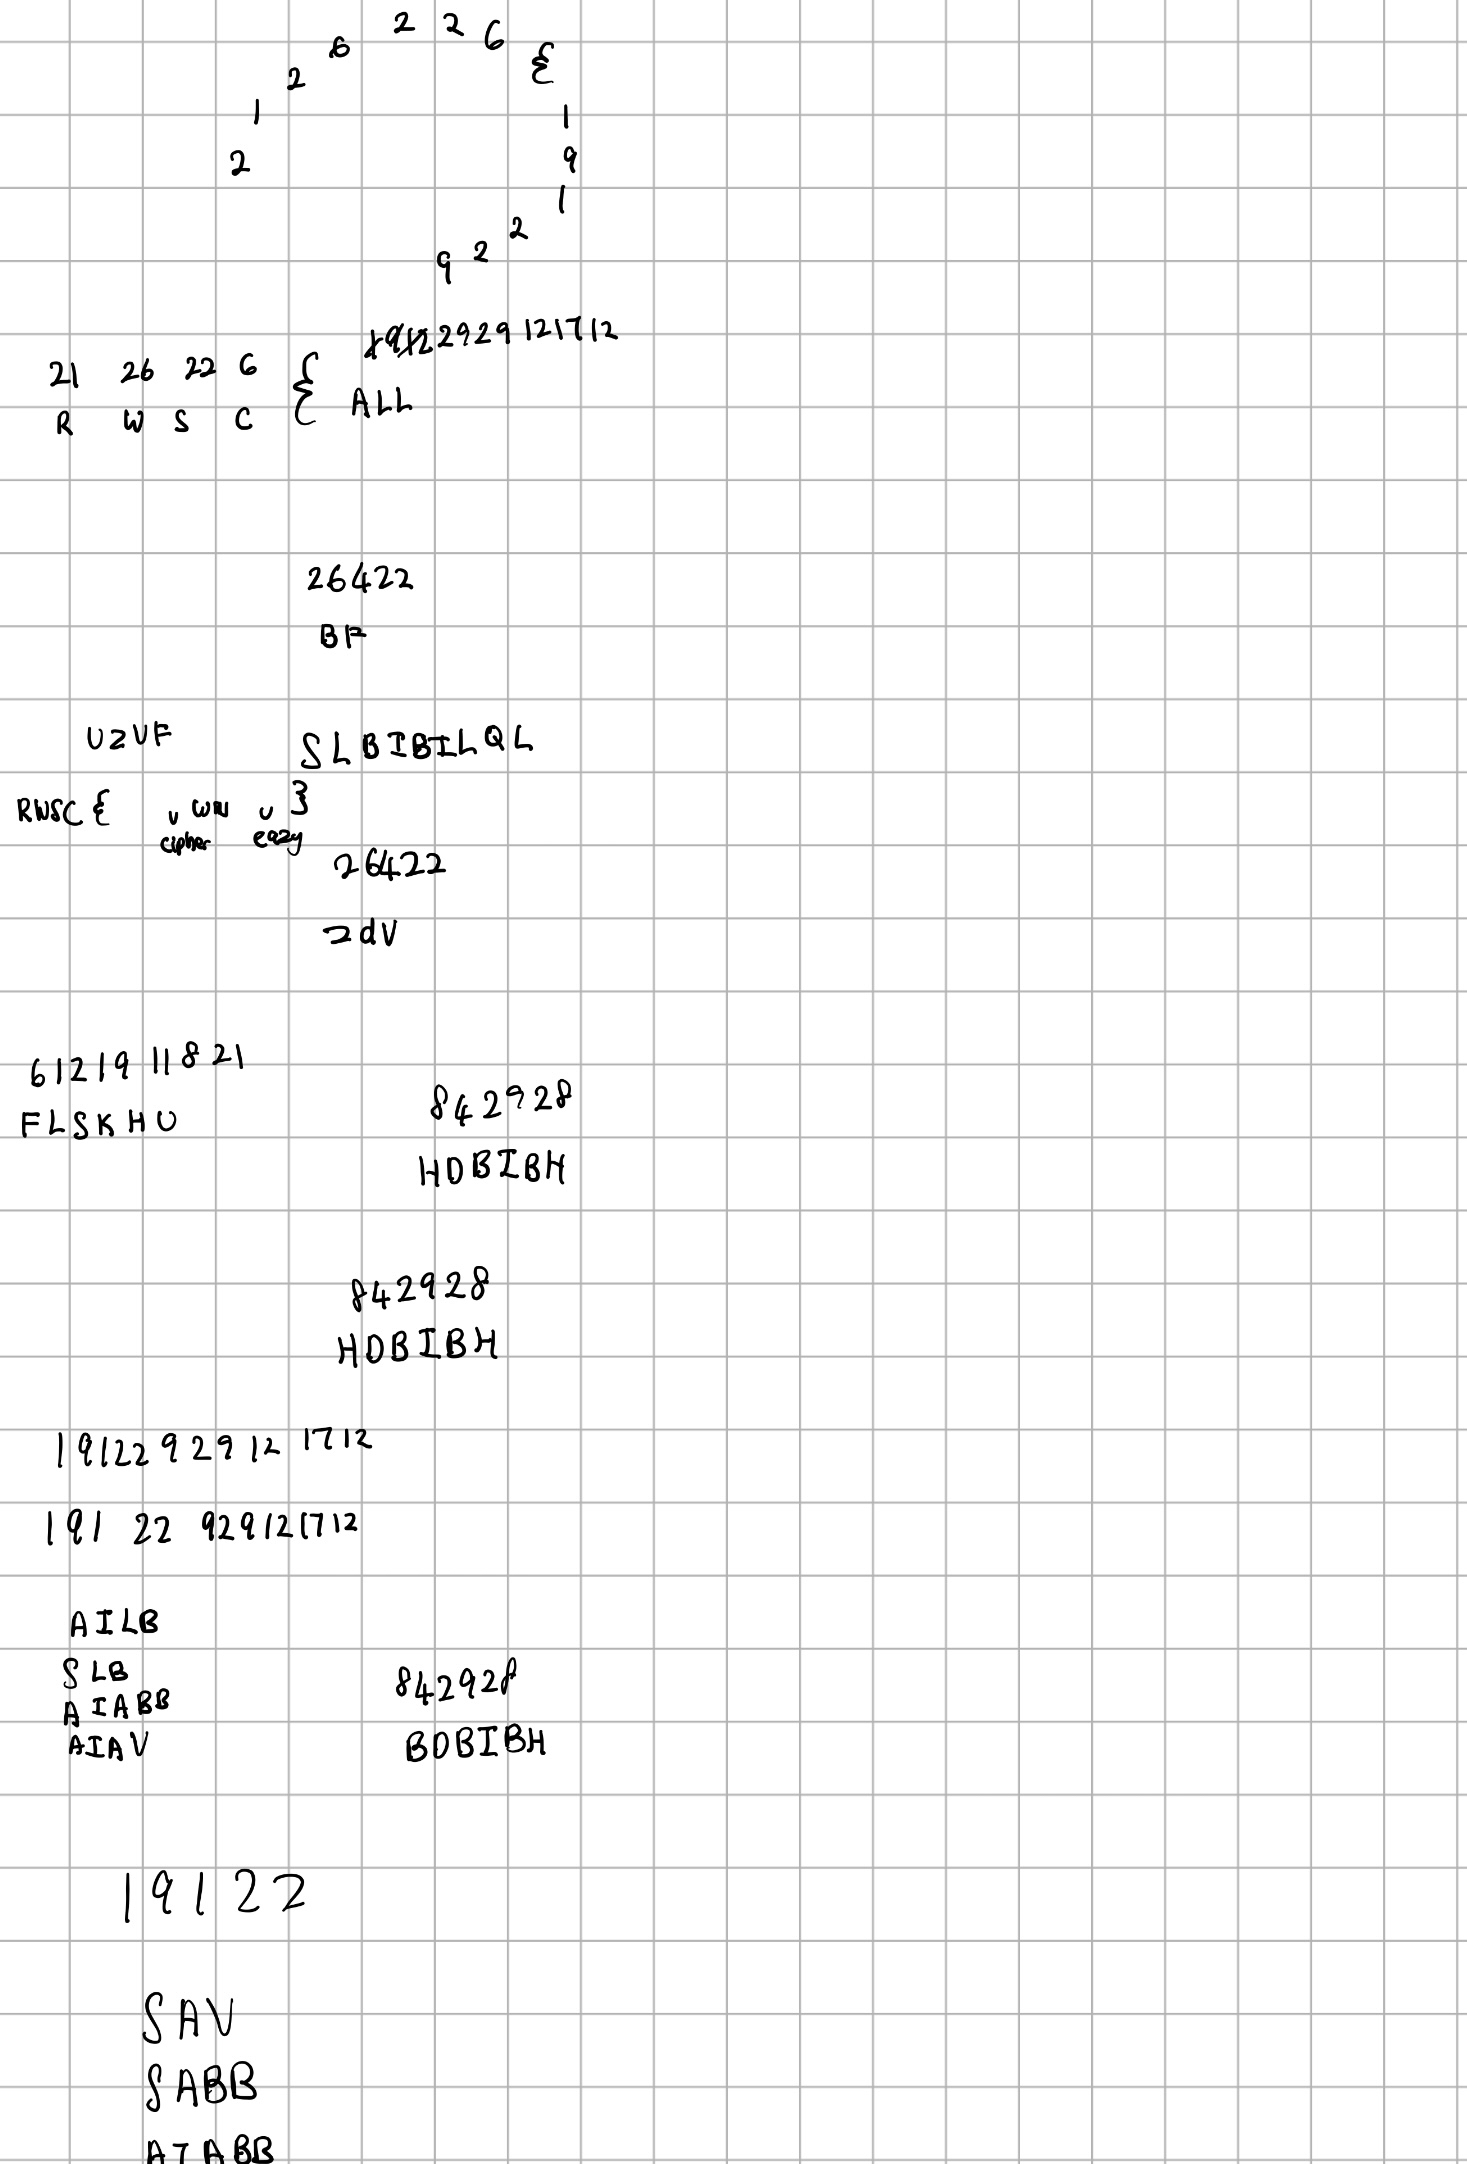 2 1 2 6 2 2 6 { 1 9 1 2 2 9
19122929121712
21 26 22 6 {
R W S C ALL
26422
BF
UZVF SLBIBILQL
RWSC{ v WIN v }
cipher eazy
26422
ZdV
61219 11821
FLSKHU
842928
HDBIBH
842928
HDBIBH
19122 9 29 12 1712
191 22 929121712
AILB
SLB
AIABB
AIAV
842928
BDBIBH
19122
SAV
SABB
AIABB